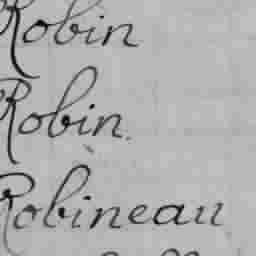 Robin
Robin.
Robineau